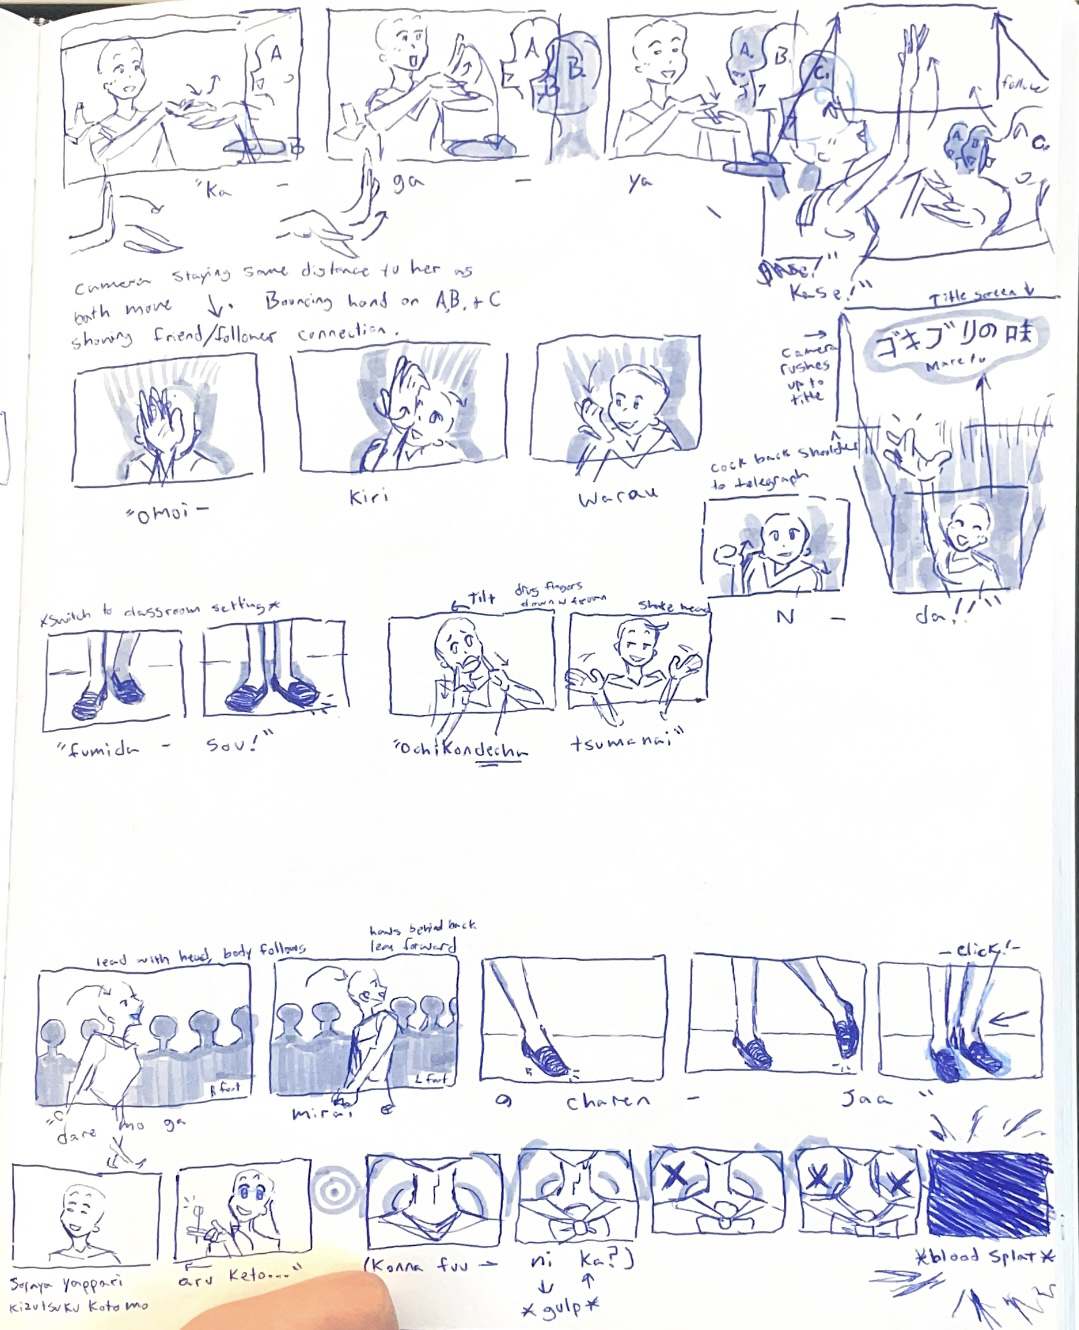 A
B
A
B
B.
A.
B.
C.
C
follow
A
B
C.
"Ka - ga - ya
Kase!"
Camera staying same distance to her as
both move ↓. Bouncing hand on A,B, + C
showing friend/follower connection.
Title screen ↓
ゴキブリの味
Maretu
→
Camera
rushes
up to
title
"Omoi -
Kiri
Warau
cock back shoulder
to telegraph
N -
da!!"
*Switch to classroom setting*
"fumida - Sou!"
Tilt
drag fingers
down w frown
shake head
"Ochikondecha
tsumanai"
lead with head, body follows
hands behind back
lean forward
- Click! -
R foot
L foot
"dare mo ga
mirai
a charen - Jaa"
Soraya yappari
Kizutsuku koto mo
aru keto..."
(Konna fuu - ni ka?)
*gulp*
*blood splat*